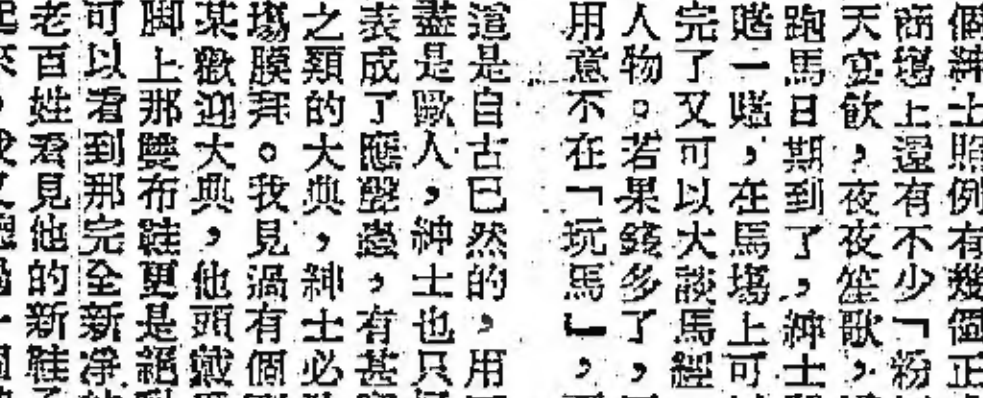 個紳士照例有幾個正
商塲上還有不少「粉
天宴飲，夜夜笙歌，
跑馬日期到了，紳士
賭一賭，在馬塲上可
完了又可以大談馬經
人物。若果錢多了，
用意不在「玩馬」，
這是自古已然的，用
盡是歐人，紳士也只
表成了應聲蟲，有甚
之類的大典，紳士必
塲膜拜。我見過有個
某歡迎大典，他頭戴
脚上那雙布鞋更是絕
可以看到那完全新淨
老百姓看見他的新鞋